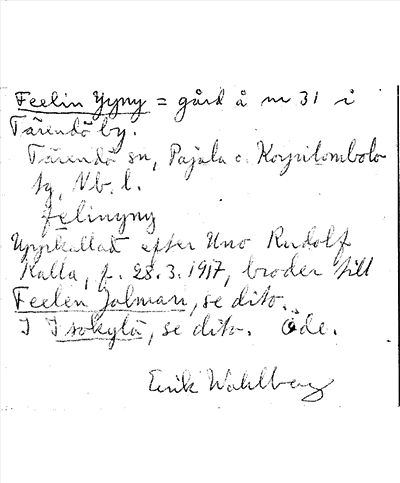 Feelin Yyny = gård å nr 31 i
Tärendö by.
Tärendö sn, Pajala o. Korpilombolo
tg, Nb. l.
felinyny
Uppkallad efter Uno Rudolf
Kalla, f. 28.3.1917, broder till
Feelen Jalmari, se dito.
I Isokylä, se dito. Öde.
Erik Wahlberg